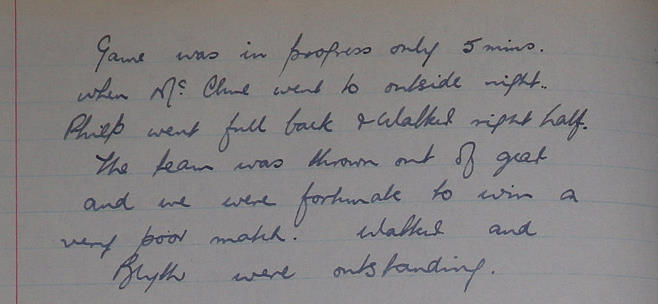 Game was in progress only 5 mins.
when Mc Clure went to outside right..
Philp went full back & Walker right half.
The team was thrown out of gear
and we were fortunate to win a
very poor match. Walker and
Blyth were outstanding.